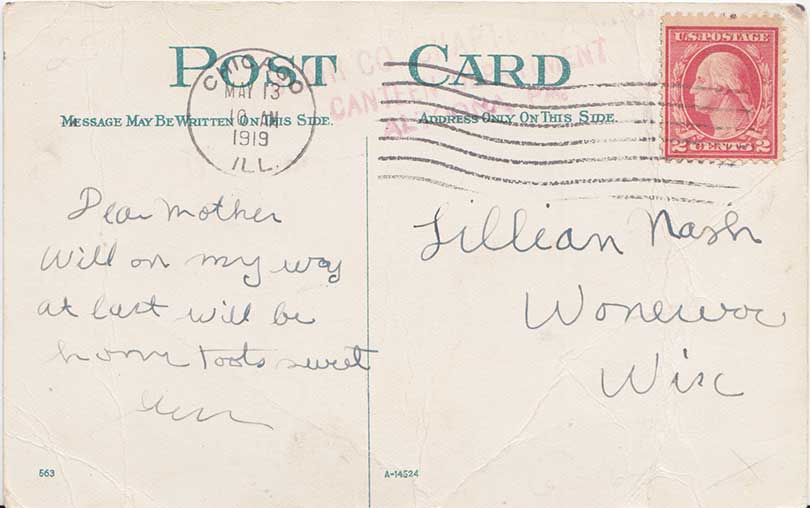 POST CARD
CHICAGO
MAY 13
10 AM
1919
ILL.
CANTEEN
U.S. POSTAGE
2 CENTS 2
MESSAGE MAY BE WRITTEN ON THIS SIDE.
ADDRESS ONLY ON THIS SIDE.
Dear Mother
Will on my way
at last will be
home toots sweet
Lillian Nash
Wonewoc
Wisc
563
A-14524